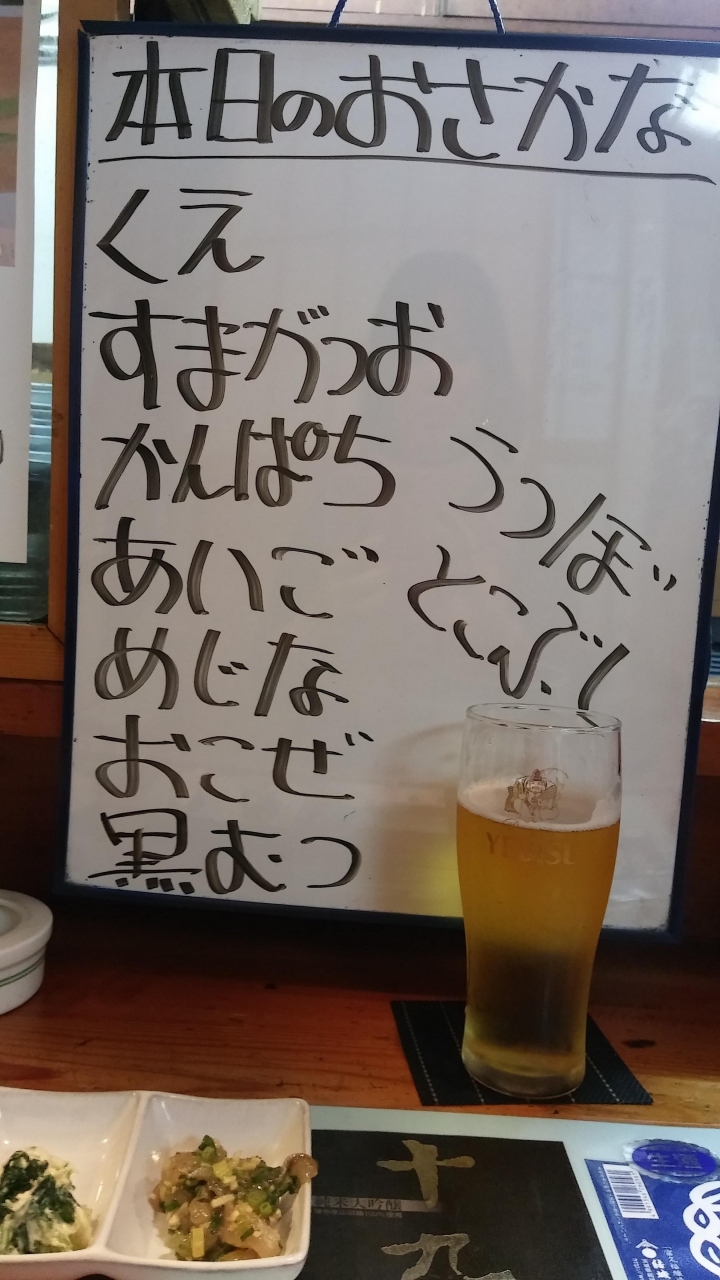 本日のおさかな
くえ
すまがつお
かんぱち
あいご
めじな
おこぜ
黒むつ
うつぼ
とこぶし
YEBISU
純米大吟醸
十
九